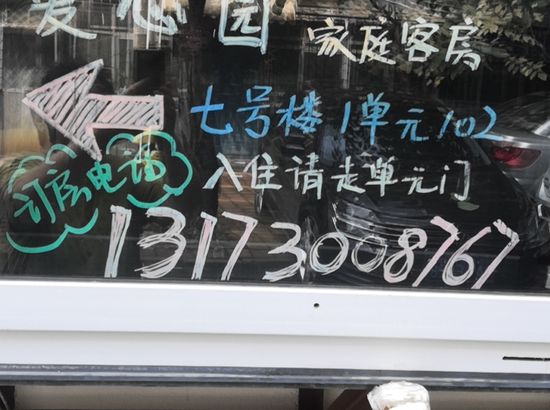 爱心园 家庭客房
七号楼1单元102
订房电话 入住请走单元门
13173008767